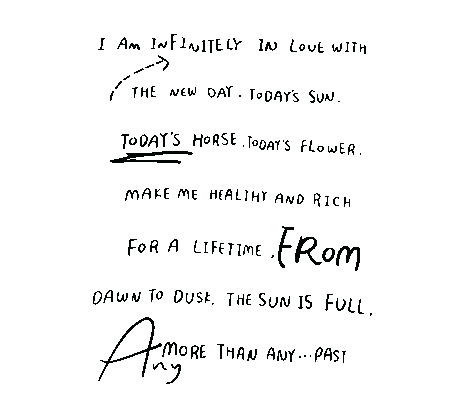 I AM INFINITELY IN LOVE WITH
THE NEW DAY. TODAY'S SUN.
TODAY'S HORSE. TODAY'S FLOWER.
MAKE ME HEALTHY AND RICH
FOR A LIFETIME. FROM
DAWN TO DUSK. THE SUN IS FULL.
Any MORE THAN ANY...PAST